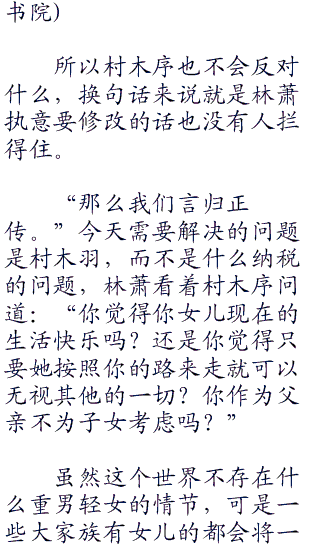 书院)
所以村木序也不会反对
什么，换句话来说就是林萧
执意要修改的话也没有人拦
得住。
“那么我们言归正
传。”今天需要解决的问题
是村木羽，而不是什么纳税
的问题，林萧看着村木序问
道：“你觉得你女儿现在的
生活快乐吗？还是你觉得只
要她按照你的路来走就可以
无视其他的一切？你作为父
亲不为子女考虑吗？”
虽然这个世界不存在什
么重男轻女的情节，可是一
些大家族有女儿的都会将一